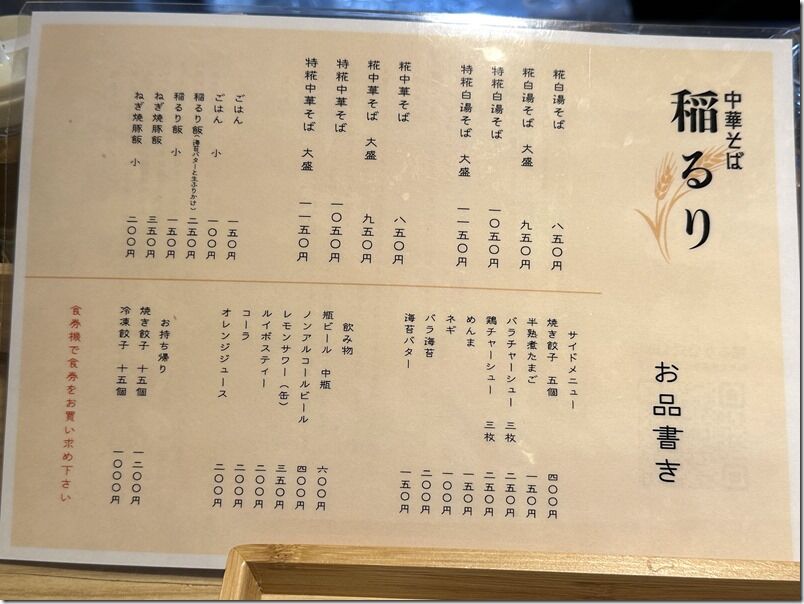 中華そば
稲るり
お品書き
糀白湯そば 八五〇円
糀白湯そば 大盛 九五〇円
特糀白湯そば 一〇五〇円
特糀白湯そば 大盛 一一五〇円
糀中華そば 八五〇円
糀中華そば 大盛 九五〇円
特糀中華そば 一〇五〇円
特糀中華そば 大盛 一一五〇円
ごはん 一五〇円
ごはん 小 一〇〇円
稲るり飯（海苔バターと生ふりかけ） 二五〇円
稲るり飯 小 一五〇円
ねぎ焼豚飯 三五〇円
ねぎ焼豚飯 小 二〇〇円
サイドメニュー
焼き餃子 五個 四〇〇円
半熟煮たまご 一五〇円
バラチャーシュー 三枚 二五〇円
鶏チャーシュー 三枚 二五〇円
めんま 一五〇円
ネギ 一〇〇円
バラ海苔 二〇〇円
海苔バター 一五〇円
飲み物
瓶ビール 中瓶 六〇〇円
ノンアルコールビール 四〇〇円
レモンサワー（缶） 三五〇円
ルイボスティー 二〇〇円
コーラ 二〇〇円
オレンジジュース 二〇〇円
お持ち帰り
焼き餃子 十五個 一二〇〇円
冷凍餃子 十五個 一〇〇〇円
食券機で食券をお買い求め下さい